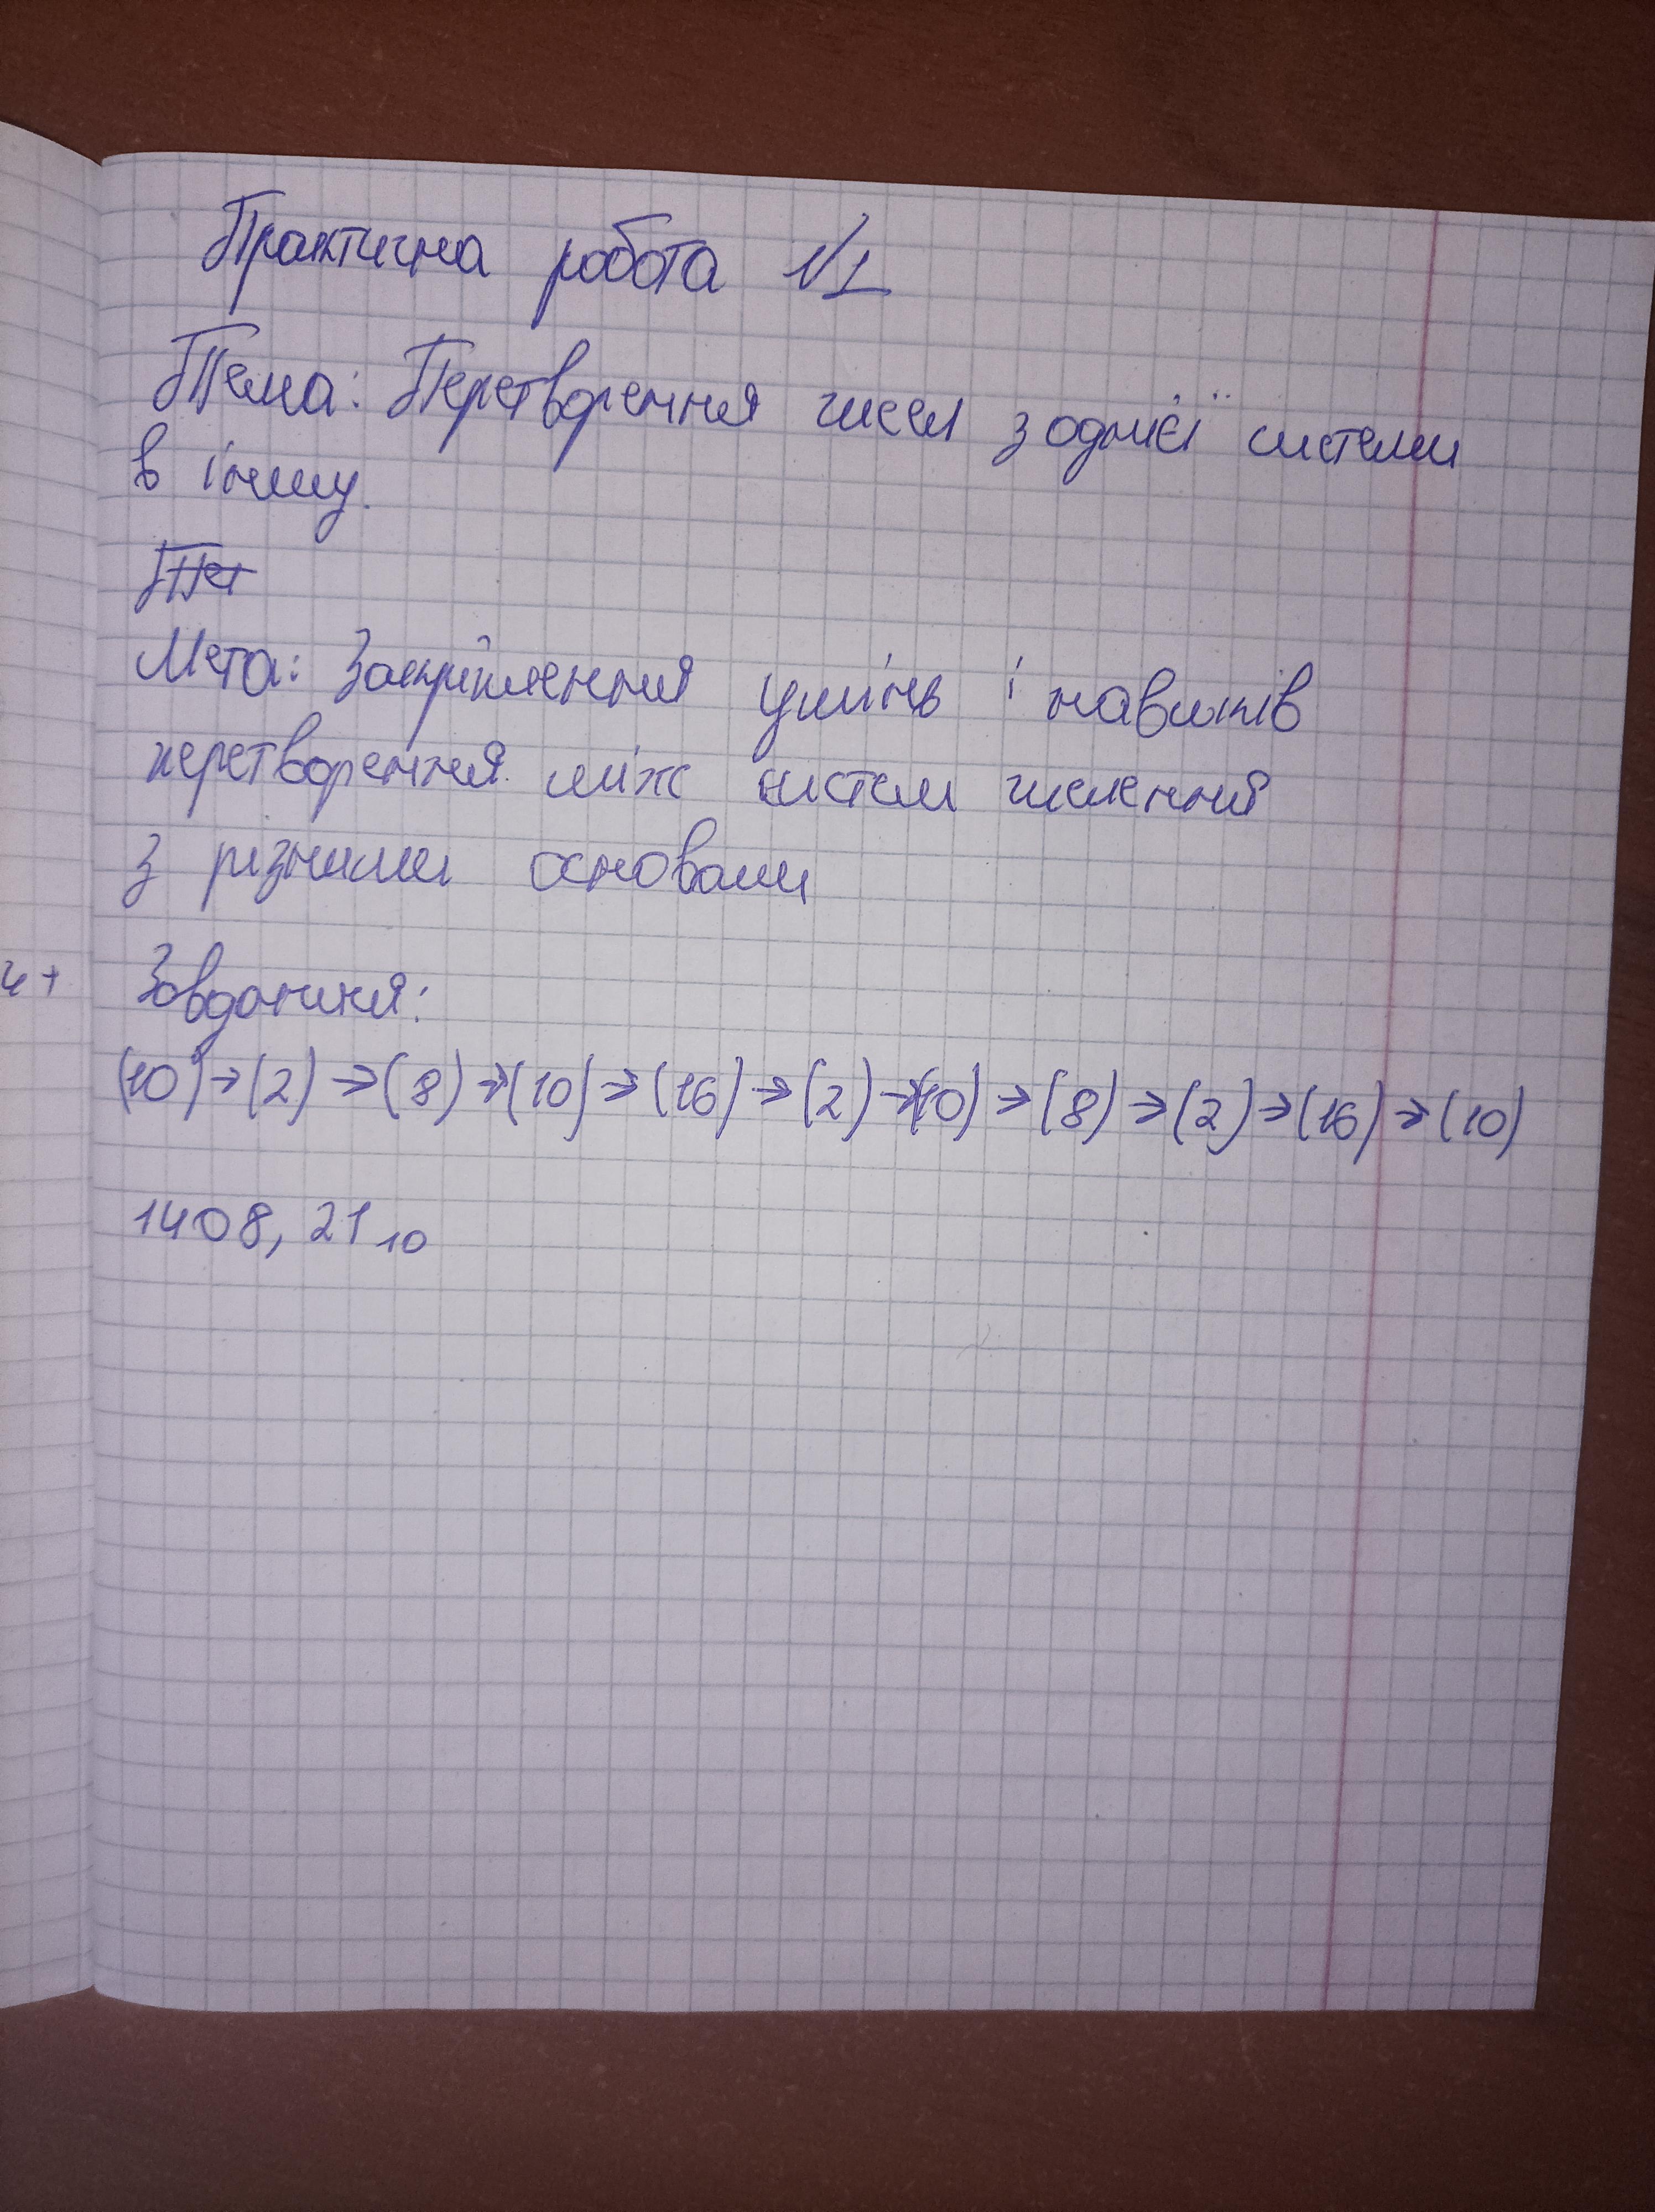 Практична робота №1
Тема: Перетворення чисел з однієї системи
в іншу.
Мета: Закріплення умінь і навиків
перетворення між систем числення
з різними основами
Завдання:
(10) → (2) → (8) → (10) → (16) → (2) → (10) → (8) → (2) → (16) → (10)
1408, 21₁₀